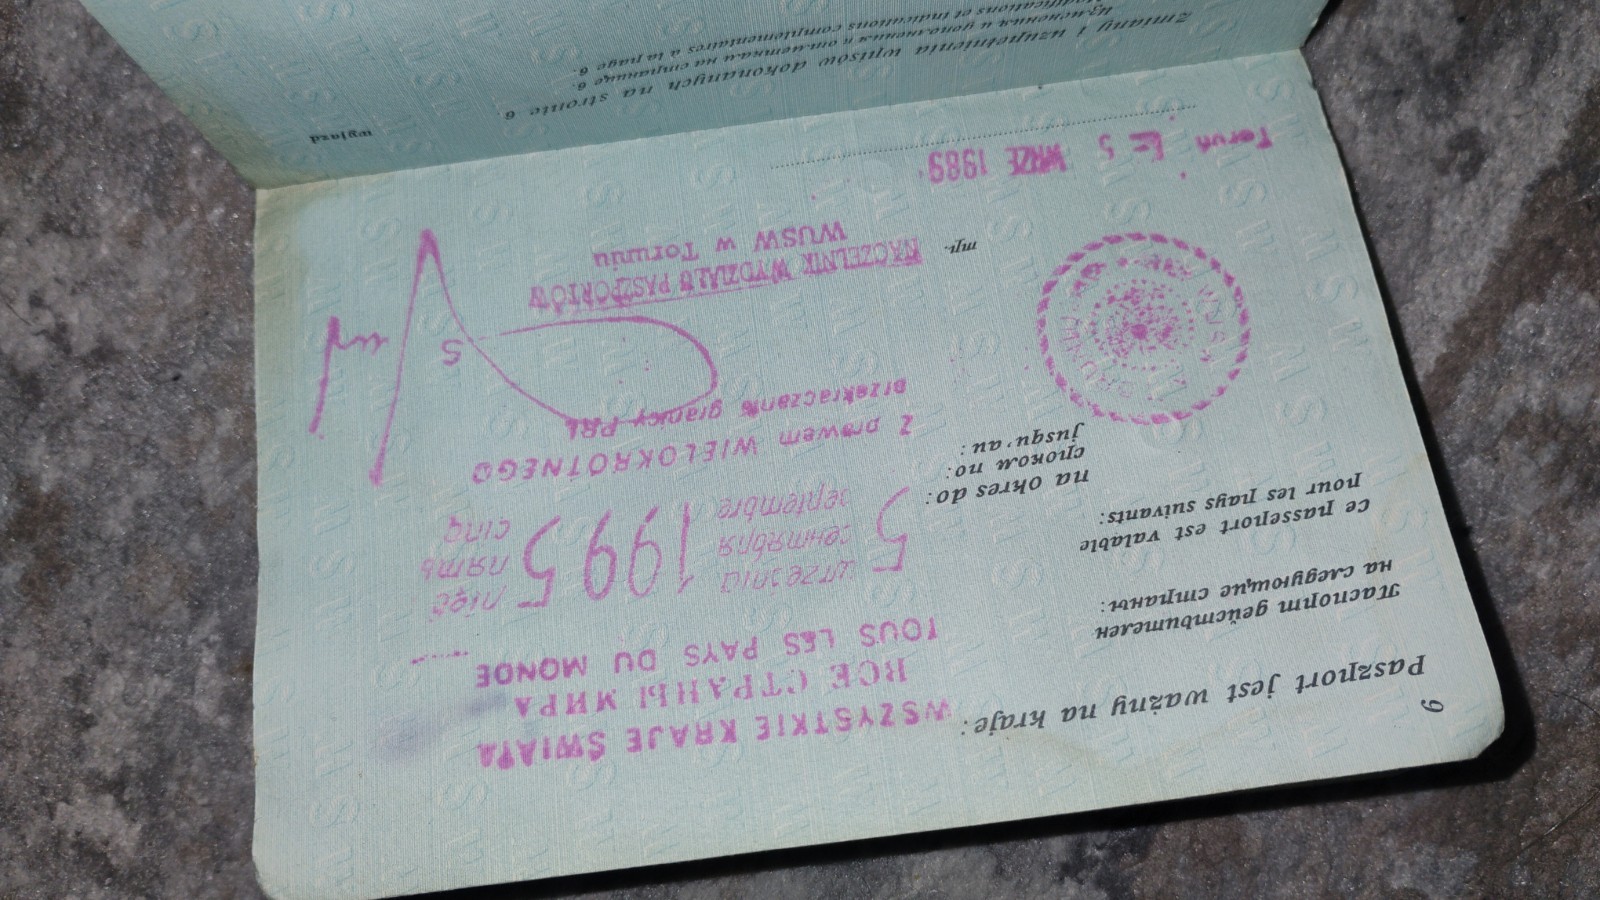 6
Paszport jest ważny na kraje:
WSZYSTKIE KRAJE ŚWIATA
ВСЕ СТРАНЫ МИРА
TOUS LES PAYS DU MONDE
Паспорт действителен
на следующие страны:
ce passeport est valable
pour les pays suivants:
5 września 1995 pięć
сентября пять
septembre cinq
na okres do:
сроком по:
jusqu'au:
z prawem WIELOKROTNEGO
przekraczania granicy PRL
5
NACZELNIK WYDZIAŁU PASZPORTÓW
WUSW w Toruniu
mp.
Toruń 5 WRZE 1989
wyjazd
Zmiany i uzupełnienia wpisów dokonanych na stronie 6.
Изменения и дополнения к отметкам на странице 6.
Modifications et indications complémentaires à la page 6.